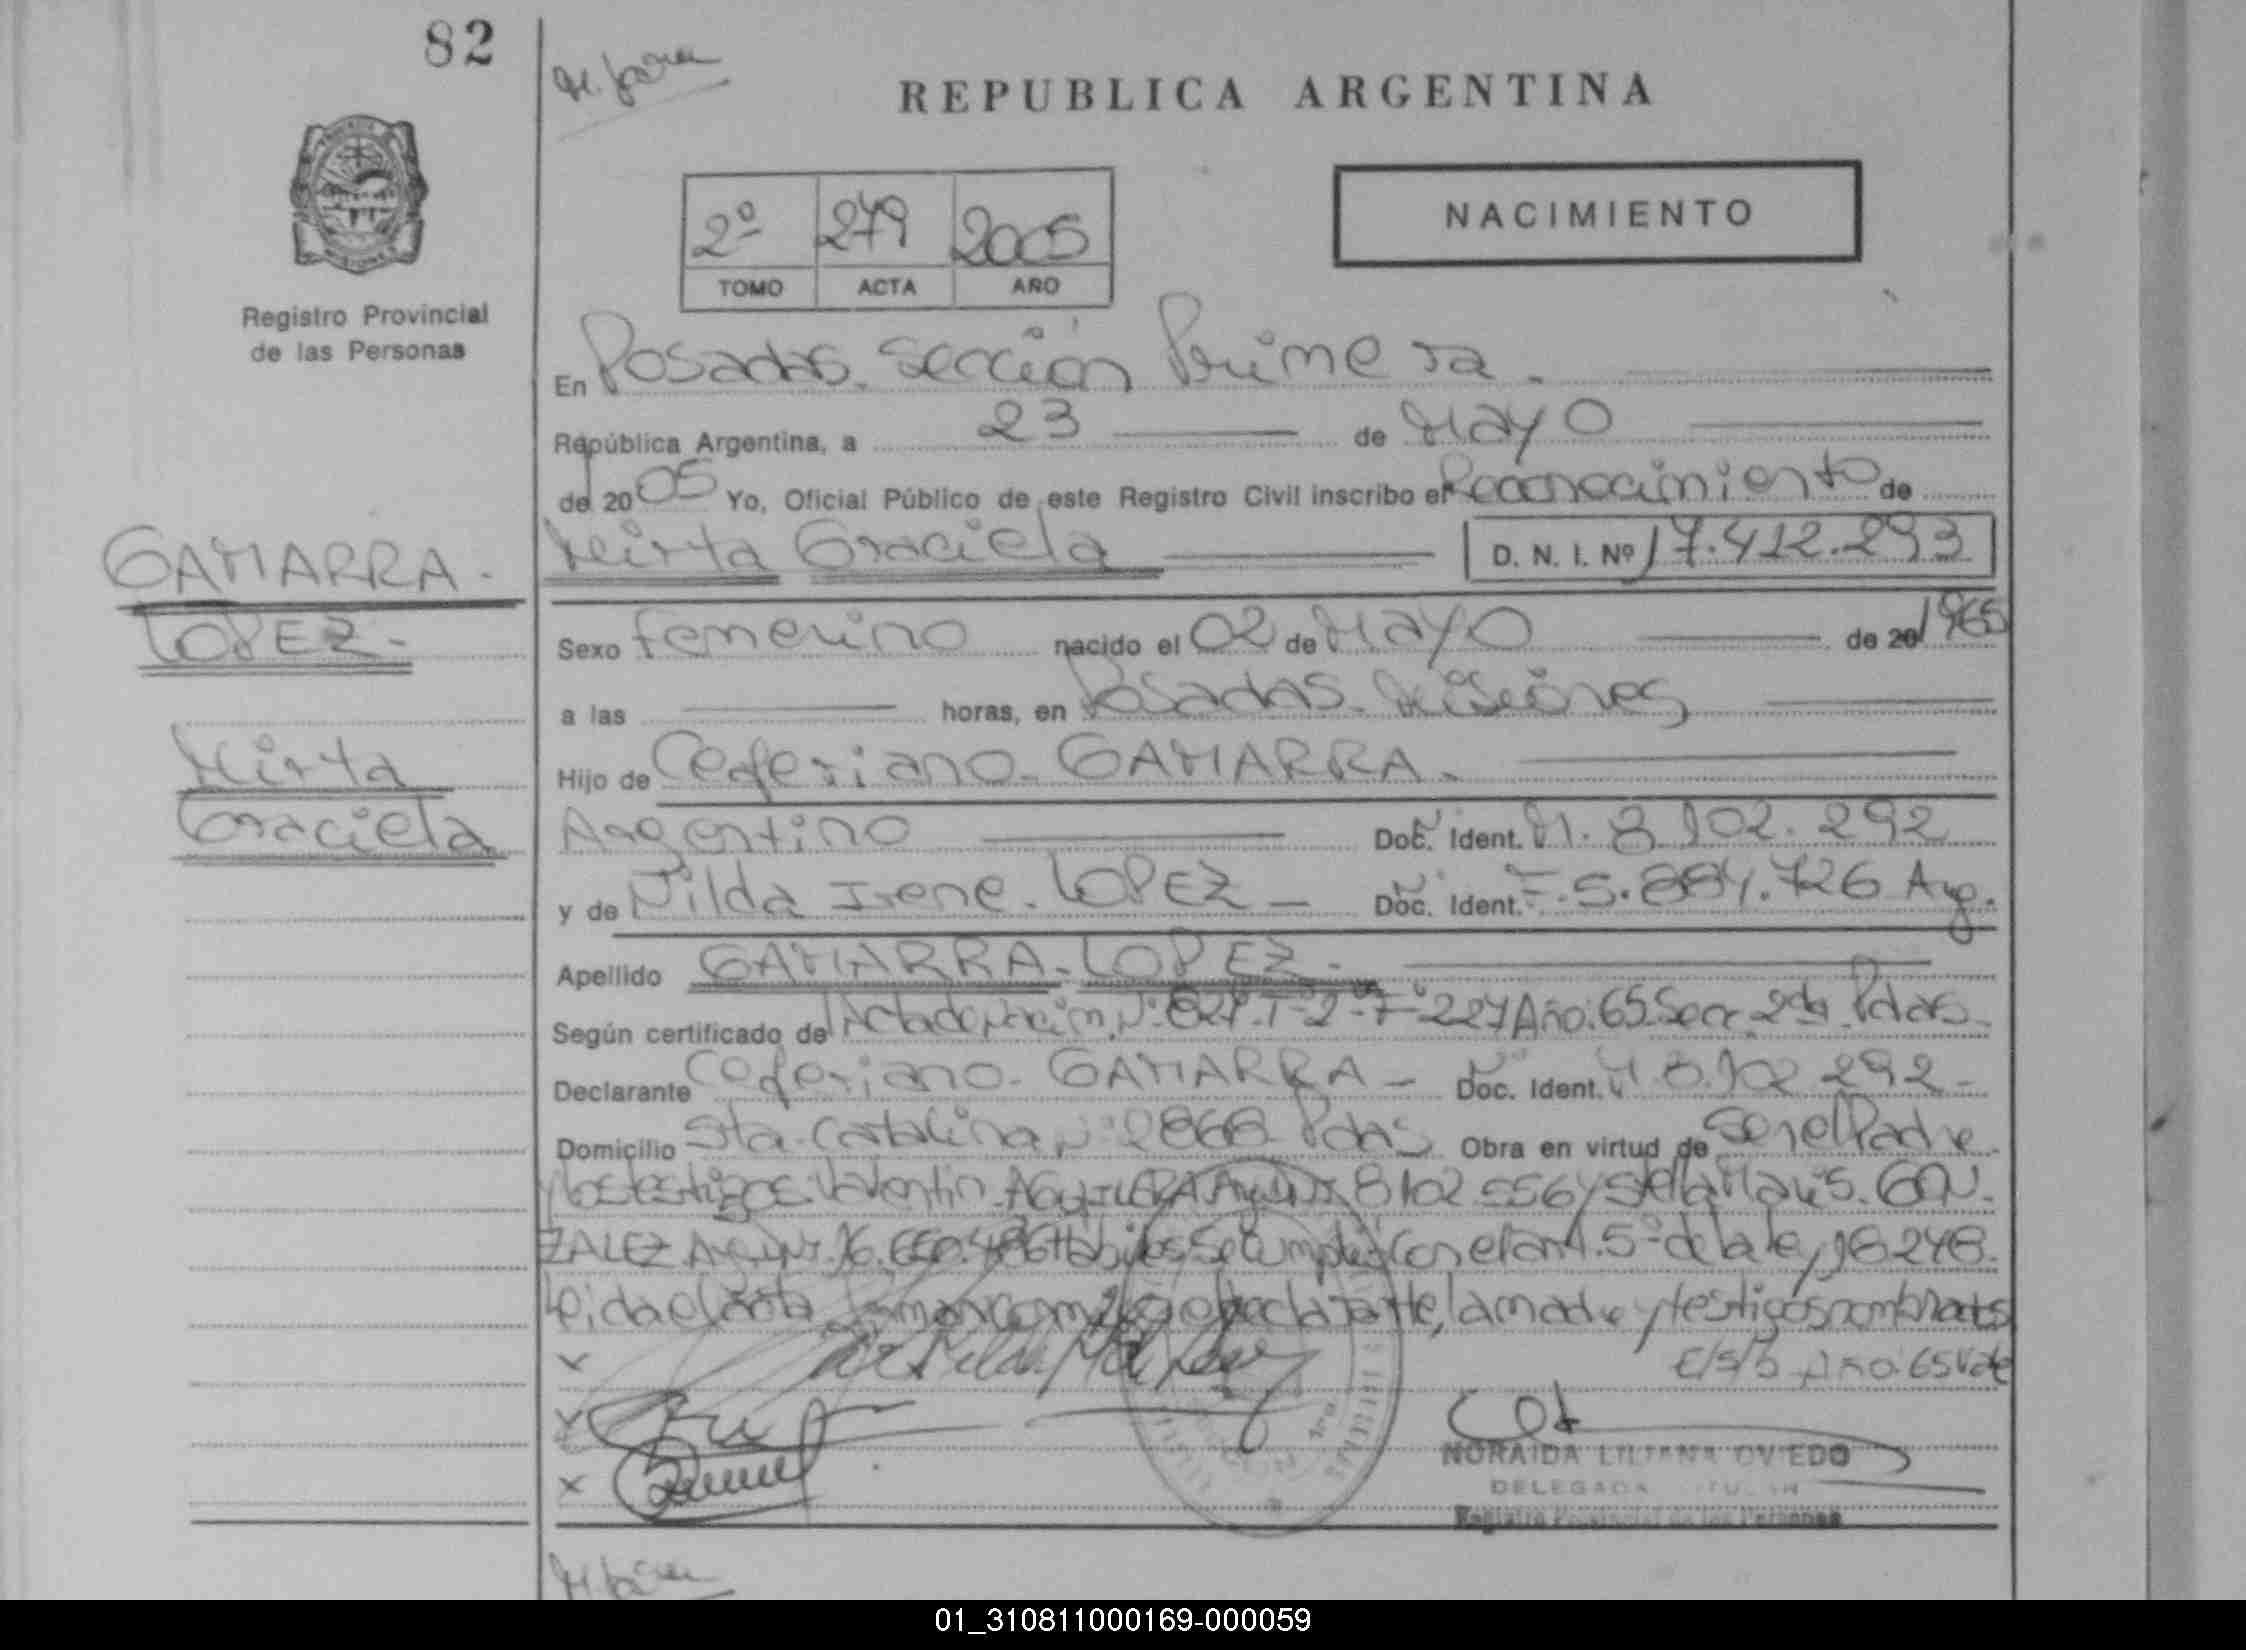 82
REPUBLICA ARGENTINA
2º 279 2005
TOMO ACTA AÑO
NACIMIENTO
Registro Provincial
de las Personas
En Posadas. Sección Primera.
República Argentina, a 23 de Mayo
de 2005 Yo, Oficial Público de este Registro Civil inscribo el Reconocimiento de
Mirta Graciela D. N. I. Nº 17.412.293
GAMARRA.
LOPEZ.-
Mirta
Graciela
Sexo femenino nacido el 02 de Mayo de 20 1965
a las horas, en Posadas. Misiones
Hijo de Ceferiano. GAMARRA.
Argentino Doc. Ident. M. 8.102.292
y de Nilda Irene. LOPEZ - Doc. Ident. F. 5.884.726 Arg.
Apellido GAMARRA. LOPEZ.-
Según certificado de Acta de Nación. Nº 827. Tº 2 - Fº 227 Año: 65. Secc. 2da Pdas.
Declarante Ceferiano. GAMARRA - Doc. Ident. M 8.102.292-
Domicilio Sta. Catalina Nº 2868 Pdas Obra en virtud de Ser el Padre.
y los testigos. Valentin. AGUILERA Arg. DNI 8102.556 y Stella Maris. GON.
ZALEZ Arg. DNI. 16.650.486 Hábiles Se Cumple Con el art. 5º de la ley 18248.
Leida el acta firman conmigo el declarante, la madre y testigos nombrados
E/S/b Año. 65 Vale
NORAIDA LILIANA OVIEDO
DELEGADA TITULAR
Registro Provincial de las Personas
01_310811000169-000059